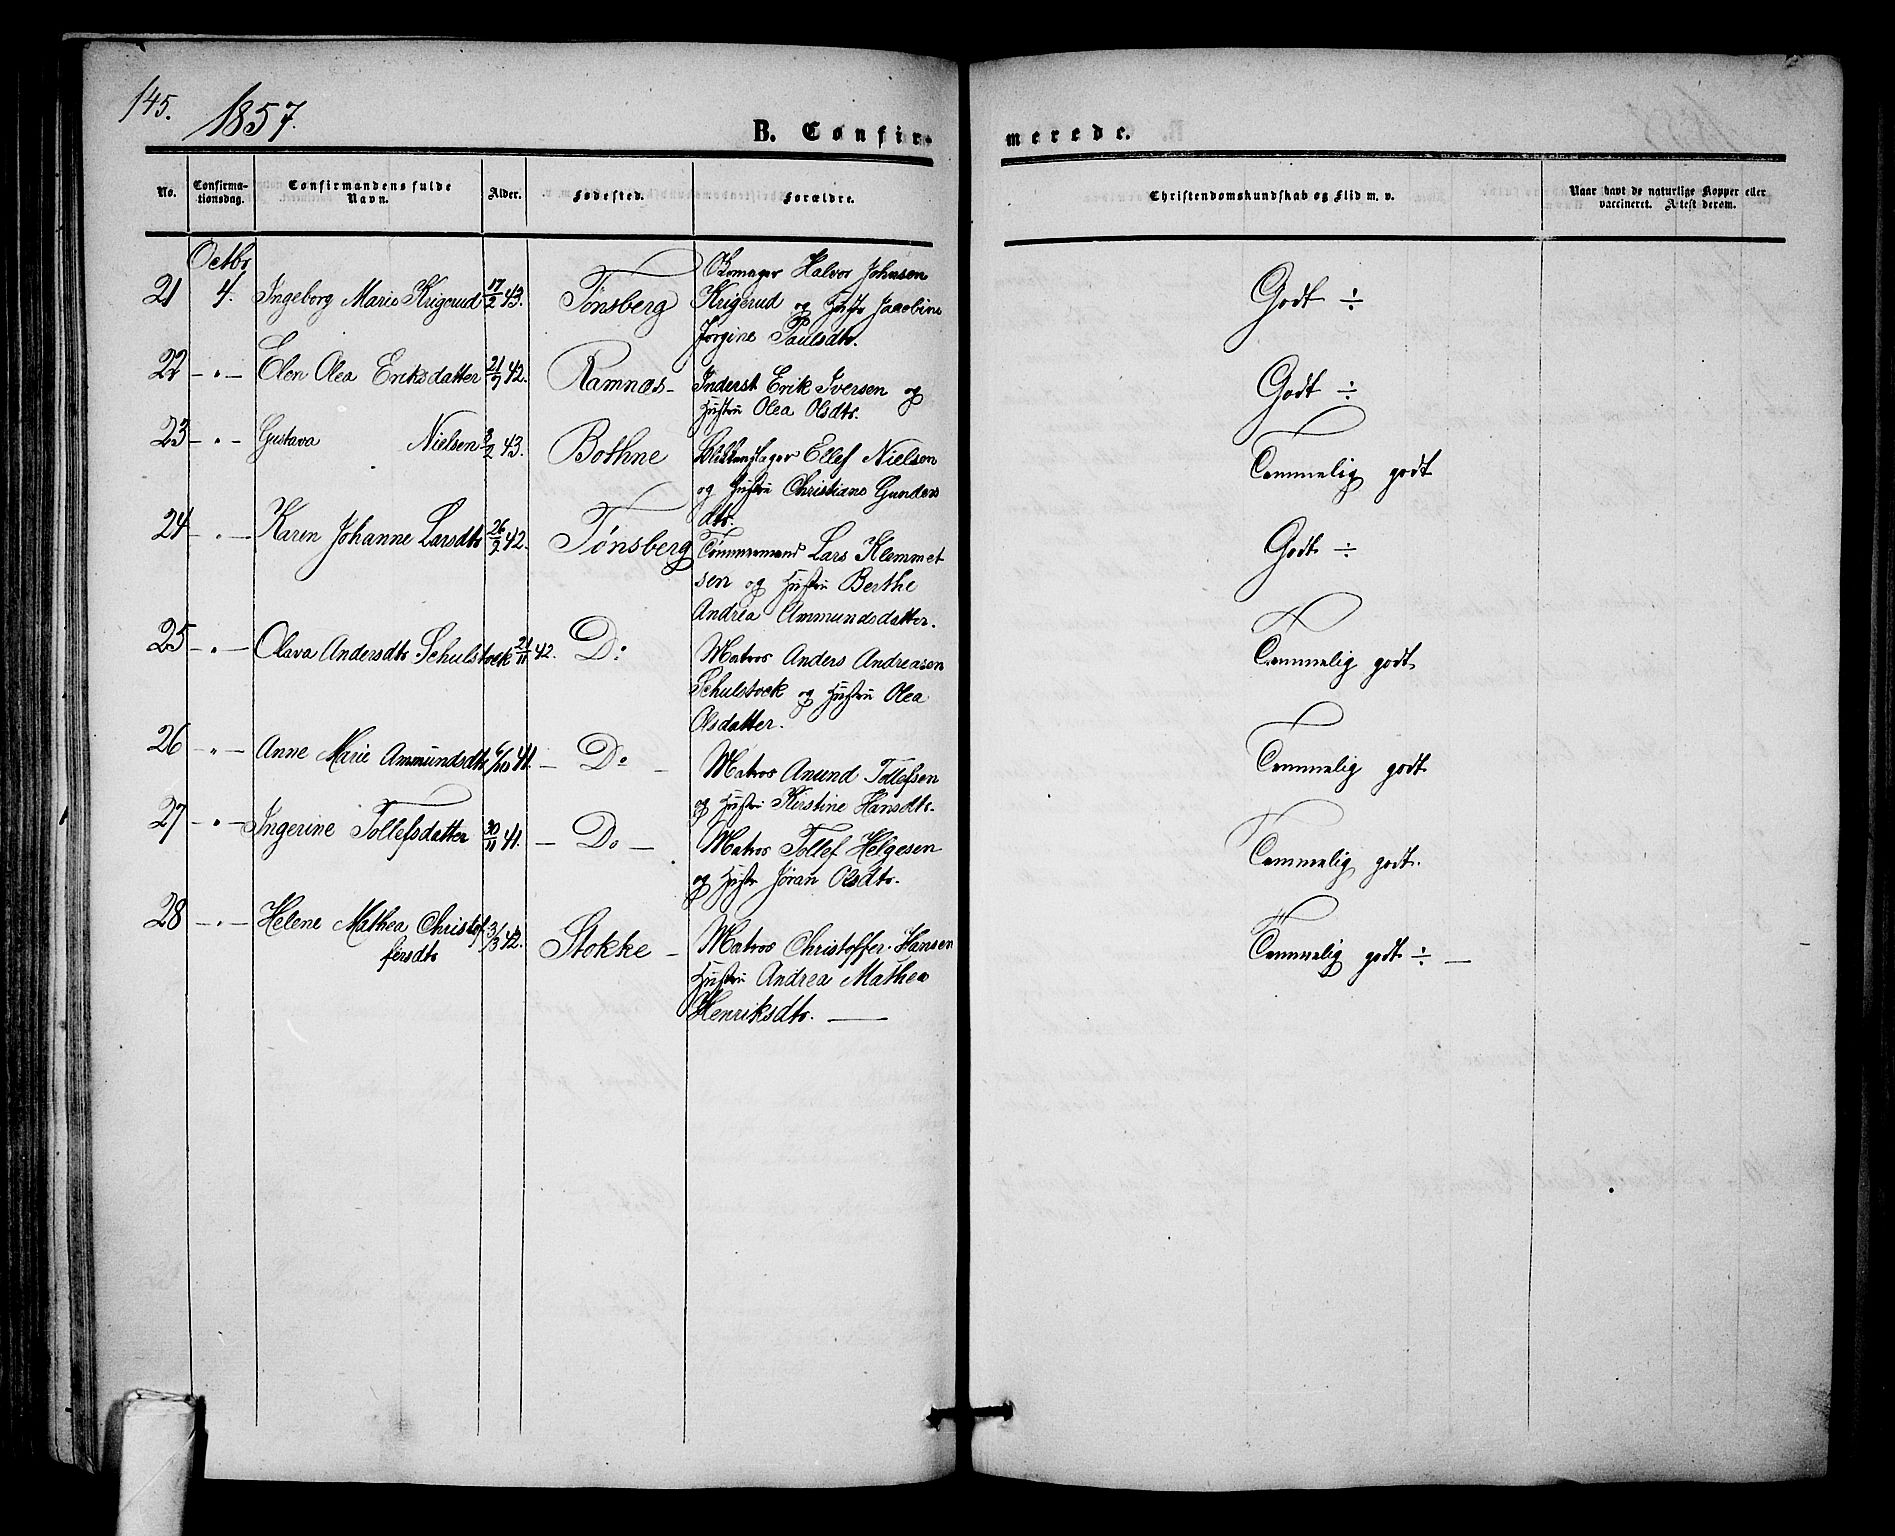 145. 1857.
B. Confirmerede.
No. Confirmationsdag. Confirmandens fulde Navn. Alder. Fødested. Forældre. Christendomskundskab og Flid m. v. Naar havt de naturlige Kopper eller vaccineret. Atest derom.
Octbr
21 4. Ingeborg Marie Krigerud 17/2 43. Tønsberg Halvor Johnsen Godt ÷
Krigerud og Hustr Jacobine
Jorgine Paulsdtr.
22 - " - Elen Olea Eriksdatter 21/7 42. Ramnæs - Inderst Erik Iversen og Godt ÷
Hustru Olea Olsdtr.
23 - " - Gustava Nielsen 43. Bothne Ellef Nielsen Temmelig godt
og Hustru Christiane Gunders
dtr.
24 - " - Karen Johanne Larsdtr 42. Tønsberg Tømmermand Lars Klemmet Godt ÷
sen og Hustru Berthe
Andrea Ammundsdatter.
25 - " - Olava Andersdtr Schulstock 21/11 42. Do Matros Anders Andreasen Temmelig godt
Schulstock og Hustru Olea
Olsdatter.
26 - " - Anne Marie Ammundsdtr 6/10 41. - Do - Matros Anund Tollefsen Temmelig godt
og Hustru Kirstine Hansdtr.
27 - " - Ingerine Tollefsdatter 30/11 41. - Do - Matros Tollef Helgesen Temmelig godt.
og Hustr Jøran Olsdtr.
28 - " - Helene Mathea Christof 3/3 42. Stokke - Matros Christoffer Hansen Temmelig godt ÷ -
fersdtr Hustru Andrea Mathea
Henriksdtr. -